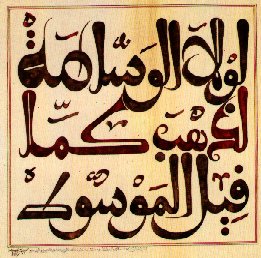 لَوْلَا الْوَاسِطَةُ
لَذَهَبَ كَمَا
قِيلَ الْمَوْسُوطُ